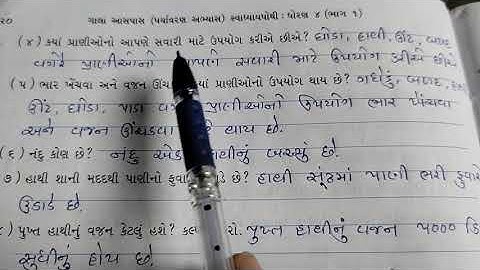 ૨૦ ગાલા આસપાસ (પર્યાવરણ અભ્યાસ) સ્વાધ્યાયપોથી : ધોરણ ૪ (ભાગ ૧)
(૪) કયાં પ્રાણીઓનો આપણે સવારી માટે ઉપયોગ કરીએ છીએ? ઘોડા, હાથી, ઊંટ, બળદ
વગેરે પ્રાણીઓનો આપણે સવારી માટે ઉપયોગ કરીએ છીએ
(૫) ભાર ખેંચવા અને વજન ઊંચ કયાં પ્રાણીઓનો ઉપયોગ થાય છે? ગધેડું, બળદ,
ઊંટ, ઘોડા, પાડા પ્રાણીઓનો ઉપયોગ ભાર ખેંચવા
અને વજન ઊંચકવા માટે થાય છે.
(૬) નંદુ કોણ છે? નંદુ એક હાથીનું બચ્ચું છે.
૭) હાથી શાની મદદથી પાણીનો ફુવા ડે છે? હાથી સૂંઢમાં પાણી ભરી ફુવારો
ઉડાડે છે.
૮) પુખ્ત હાથીનું વજન કેટલું હશે? કલ રો. પુખ્ત હાથીનું વજન ૫૦૦૦ કિ
સુધીનું હોય છે.